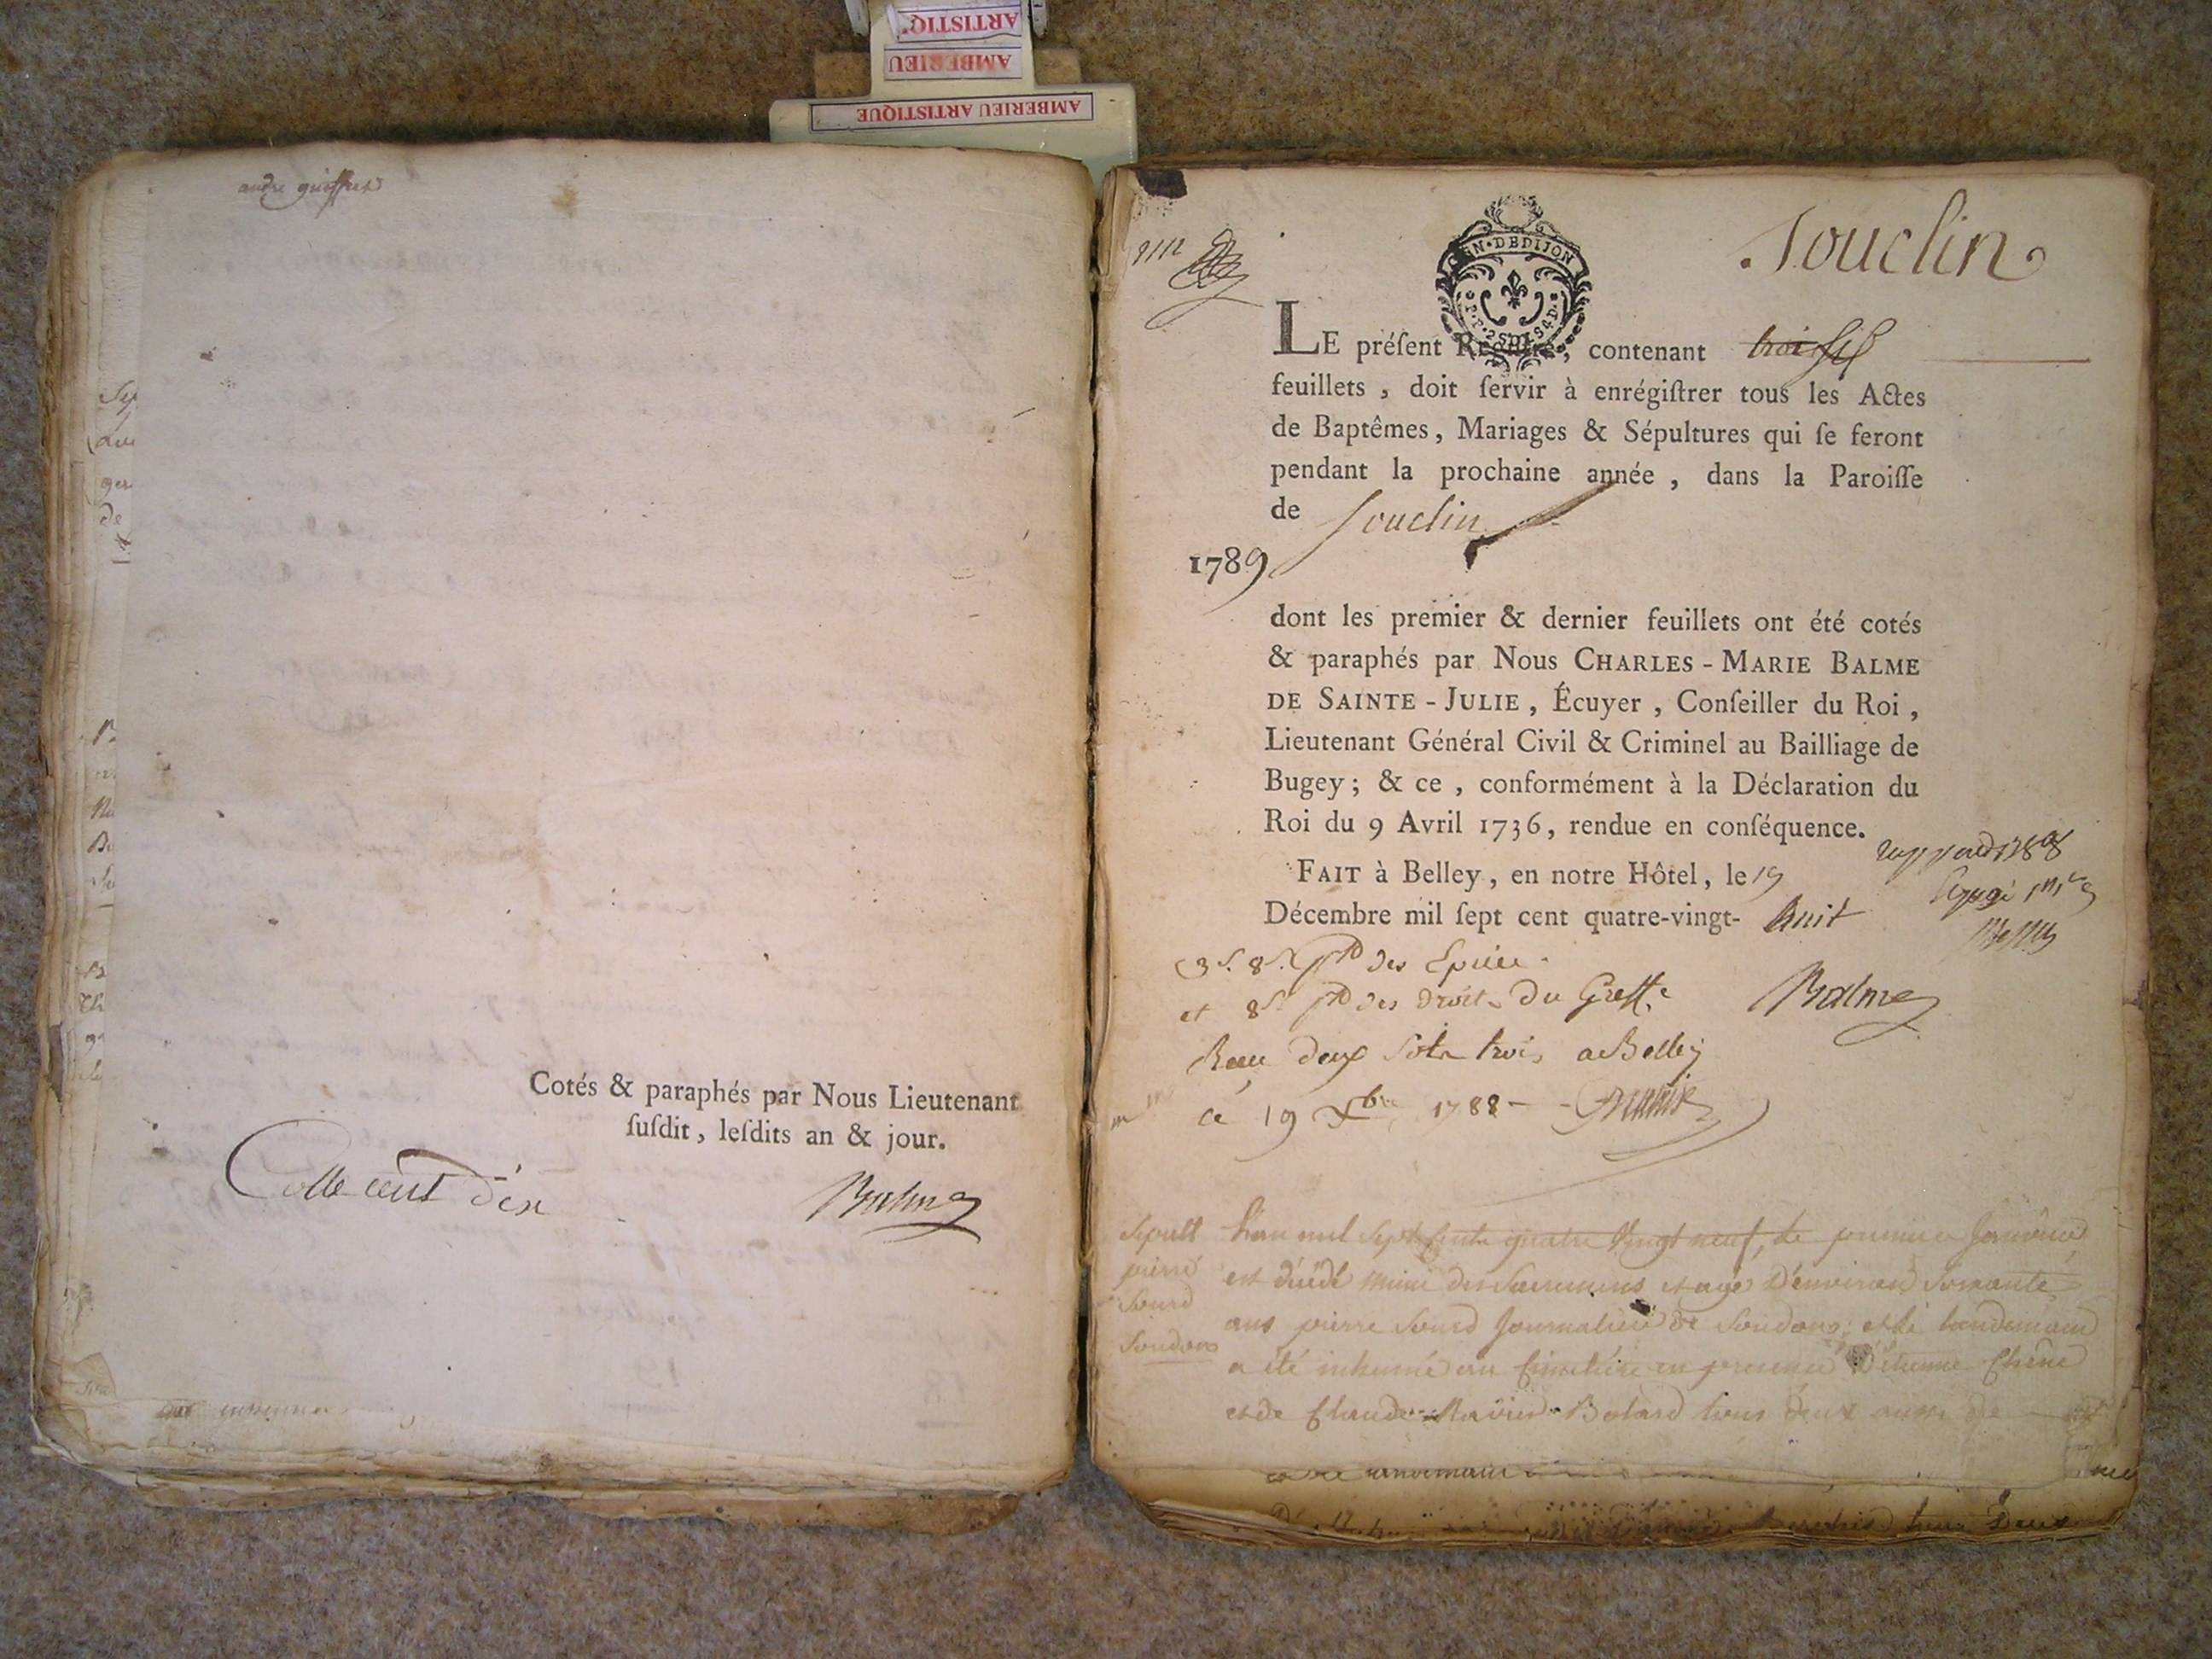 ARTISTIQ
AMBERIEU
AMBERIEU ARTISTIQUE
andre
Cotés & paraphés par Nous Lieutenant
ſuſdit, leſdits an & jour.
Cotte cent dix
Balme
Souclin
GEN·DE DIJON
LE préſent Regiſtre, contenant trois
feuillets, doit ſervir à enrégiſtrer tous les Actes
de Baptêmes, Mariages & Sépultures qui ſe feront
pendant la prochaine année, dans la Paroiſſe
de Souclin
1789
dont les premier & dernier feuillets ont été cotés
& paraphés par Nous CHARLES-MARIE BALME
DE SAINTE-JULIE, Écuyer, Conſeiller du Roi,
Lieutenant Général Civil & Criminel au Bailliage de
Bugey; & ce, conformément à la Déclaration du
Roi du 9 Avril 1736, rendue en conſéquence.
FAIT à Belley, en notre Hôtel, le 19
Décembre mil ſept cent quatre-vingt-huit
des Epices
et 8s. des droits du Greffe
Balme
Receu deux sols trois a Belley
ce 19 Xbre 1788
Sepult
pierre
Sourd
Soudon
L'an mil sept cents quatre vingt neuf, le premier Janvier
est décédé muni des Sacremens et agé d'environ soixante
ans pierre Sourd Journalier de Soudon; et le lendemain
a été inhumé au Cimetière en presence d'étienne Chêne
et de Claude Ravier Bolard tous deux aussi de